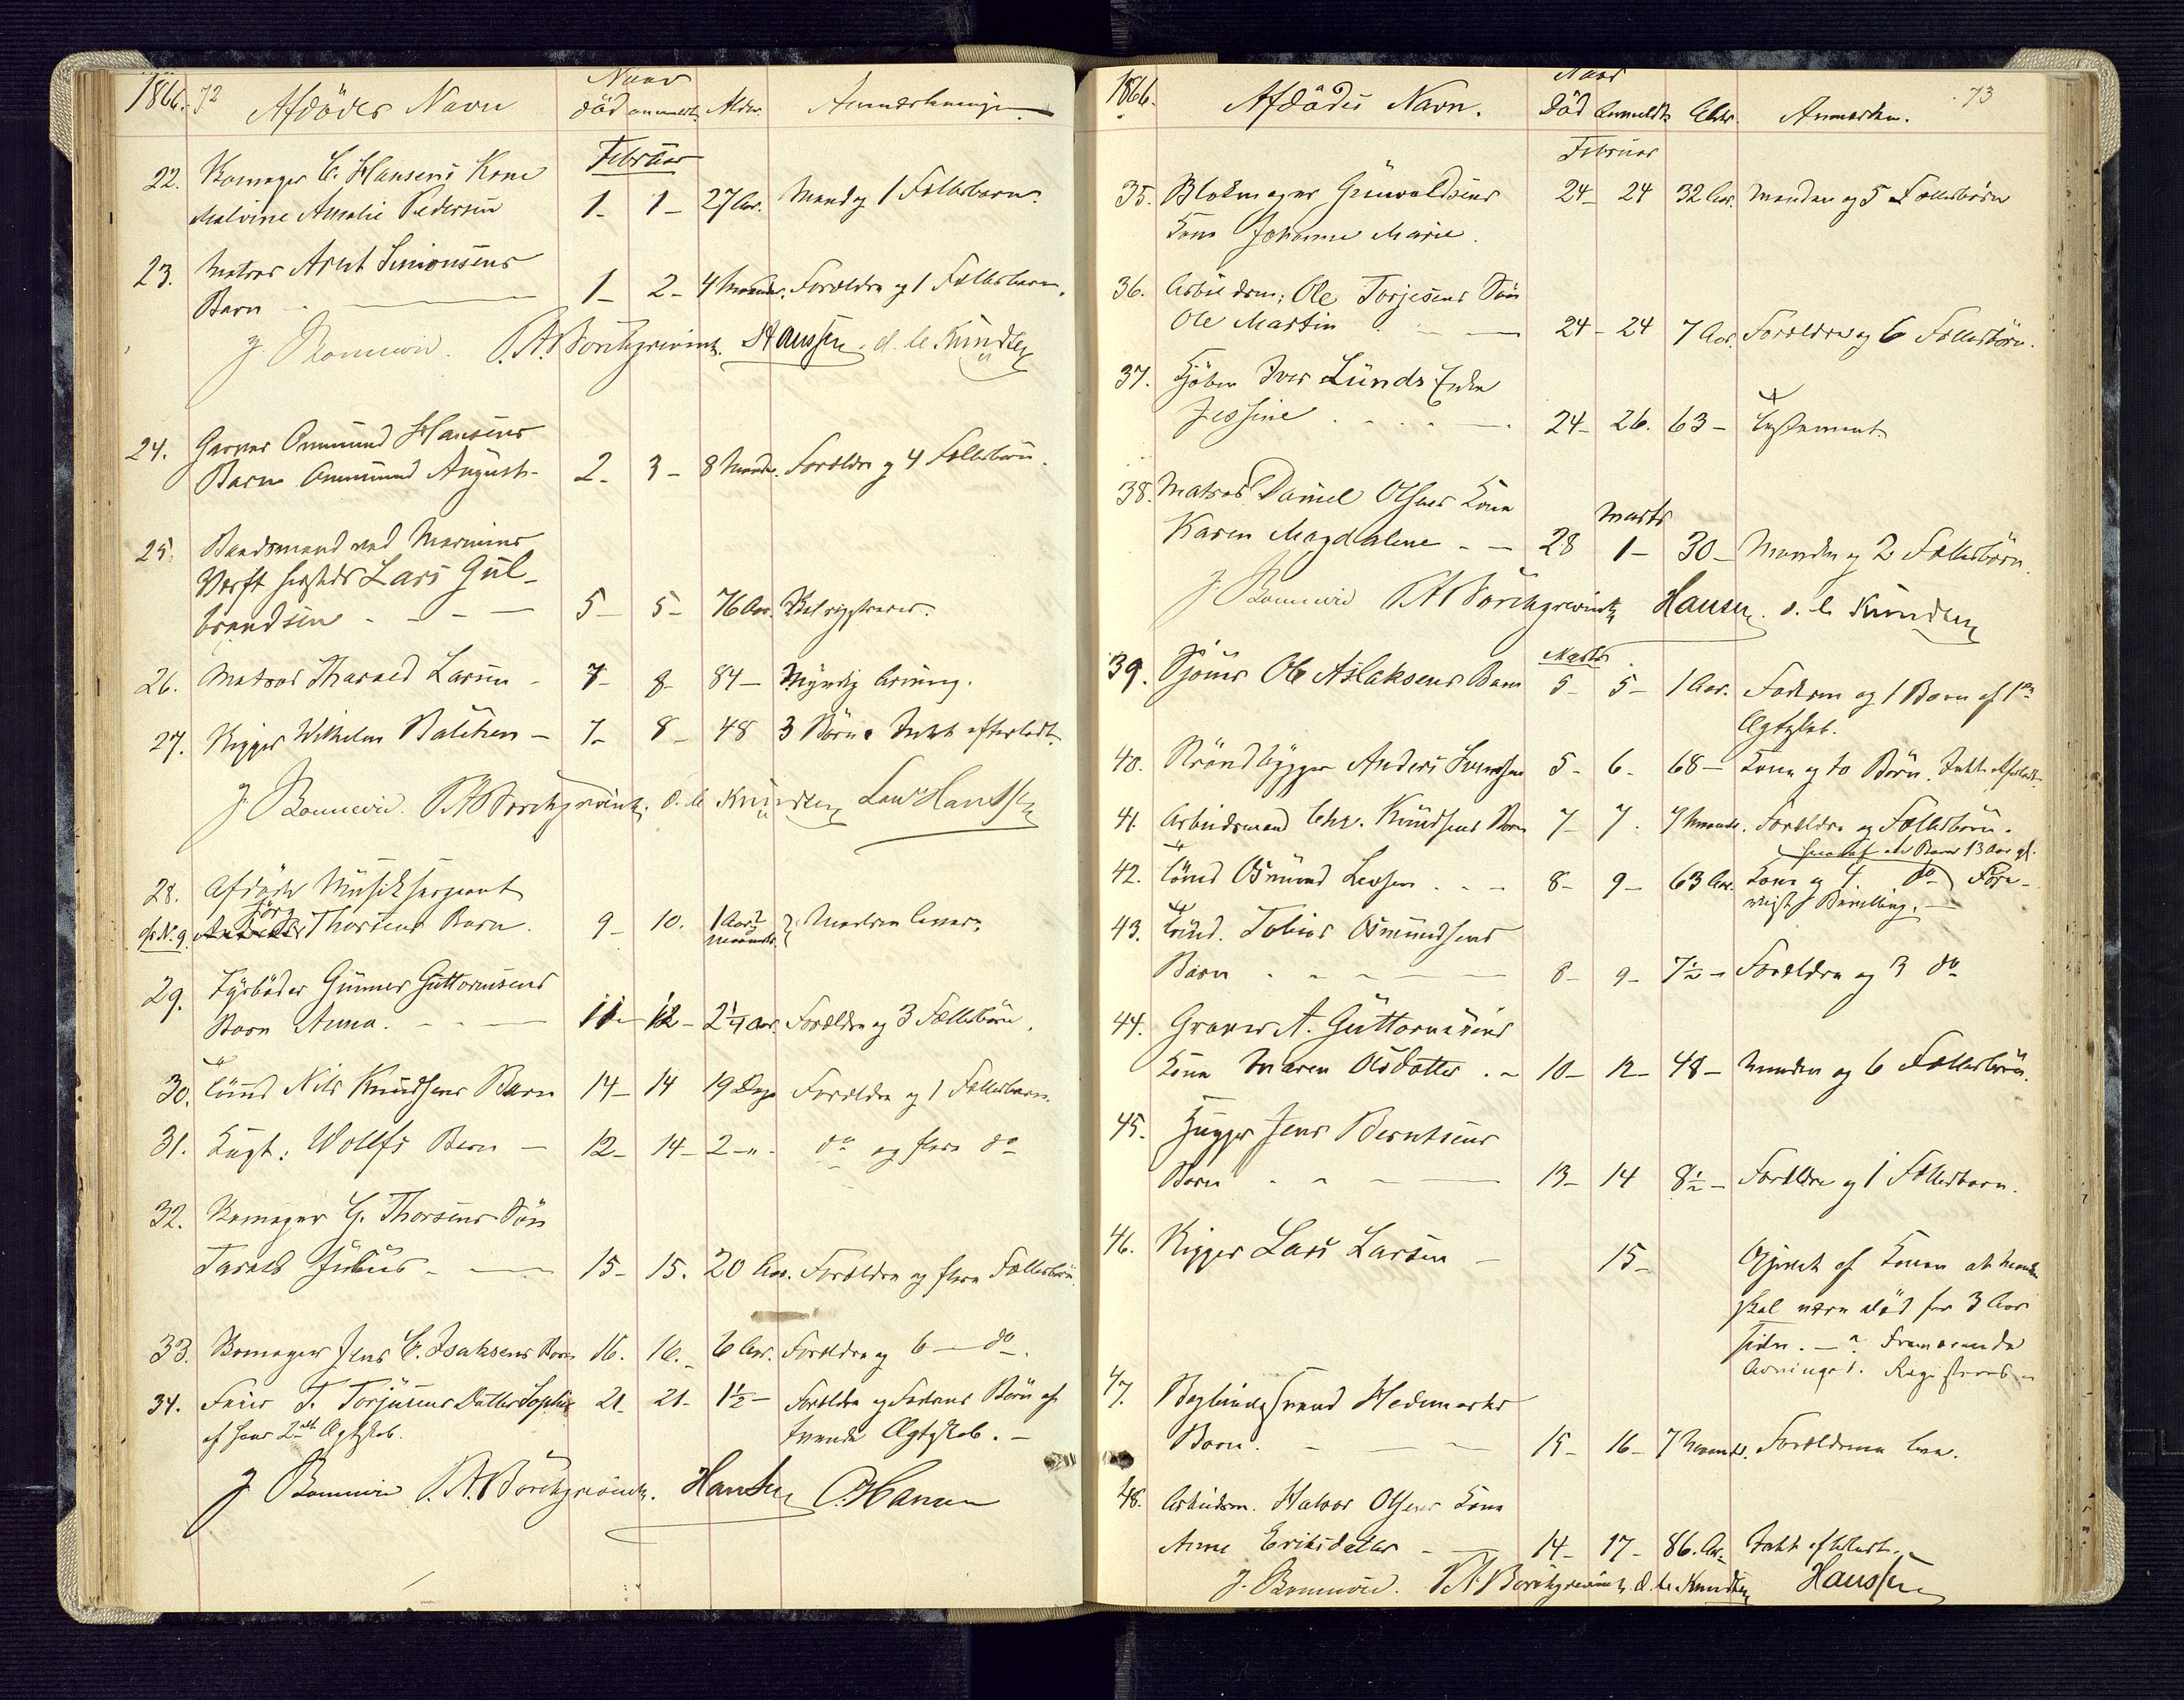 1866. 72
Afdödes Navn
Naar
död anmeldt. Alder. Anmærkninger
Februar
22. Bomager C. Hansens Kone
Malvine Amalie Pedersen 1- 1- 27 Aar. Mand og 1 Fællesbarn.
23. Matros Arnt Simonsens
Barn 1- 2- 4 Maaneder. Forældre og 1 Fællesbarn.
J. Bonnevie. P. A. Borchgrevink. Hanssen. d. le Knudtz
24. Garver Ommund Hansens
Barn Ommund August- 2- 3- 8 Maander. Forældre og 4 Fællesbörn.
25. Baadsmand ved Marinens
Verft Lars Gul-
brandsen 5- 5- 76 Aar.
26. Matros Tharald Larsen 7- 8- 84- Myndig Arving.
27. Rigger Wilhelm Balchen - 7- 8- 48 3 Börn. Intet efterladt.
J. Bonnevie. P A Borchgrevink. d. le Knudtz Hanssen
28. Afdöde Musiksergeant
cfr. N. 9. Jörg Thorsens Barn. 9- 10. 1 Aar 7 Maaneder. Moderen lever.
29. Fyrböder Gunner Guttormsens
Barn Anna. 11- 12- 2¼ Aar. Forældre og 3 Fællesbörn.
30. Tömd Nils Knudsens Barn 14- 14 19 Dage Forældre og 1 Fællesbarn.
31. Kugt: Wollfs Barn - 12- 14- 2 -"- do og flere do
32. Bomager G. Thorsens Sön
Taralb Julius - 15- 15. 20 Aar. Forældre og flere Fællesbörn.
33. Bomager Jens C. Isaksens Barn 16. 16.- 6 Aar. Forældre og 6 - do.
34. Feier T. Torjusens Datter Sophie 21. 21- 1½- Forældre og Faderens Börn af
af hans 2det Ægteskab. tvende Ægteskab.-
J. Bonnevie P. A. Borchgrevink. Hanssen O. Hansen
1866.
Afdödes Navn.
Naar
Död Anmeldt Alder. Anmærkn. 73
Februar
35. Blokmager Grunvaldsens 24- 24 32 Aar. Manden og 5 Fællesbörn
Kone Johanne Marie.
36. Arbeidsm. Ole Torjesens Sön
Ole Martin 24- 24 7 Aar. Forældre og 6 Fællesbörn.
37. Kjöbm Iver Lunds Enke
Jessine 24- 26. 63- Testament.
38. Matros Daniel Olsens Kone
Marts
Karen Magdalene - - 28 1- 30- Manden og 2 Fællesbörn.
J. Bonnevie P A Borchgrevink Hanssen. d. le Knudtz
Marts
39. Sjömd Ole Aslaksens Barn 5- 5- 1 Aar. Faderen og 1 Barn af 1ste
Ægteskab.
40. Strandbygger Anders Svendsen 5- 6- 68- Kone og to Börn. Intet efterladt.
41. Arbeidsmand Chr. Knudsens Barn 7- 7. 7 Maander. Forældre og Fællesbörn.
hvoraf et Barn 13 Aar gl.
42. Tömd Osmund Larsen 8- 9- 63 Aar. Kone og 4 do Fore-
viist Bevilling.-
43. Tömd. Tobias Osmundsens
Barn 8- 9- 7½- Forældre og 3 do
44. Graver A. Guttormsens
Kone Maren Olsdatter 10- 12- 48- Manden og 6 Fællesbörn.
45. Hugger Jens Berntsens
Barn 13- 14 8½- Forældre og 1 Fællesbarn.
46. Rigger Lars Larsen - 15- Opgivet af Konen at Manden
skal være död for 3 Aar
siden. - Fraværende
Arvinger. Registreret -
47. Hedemarks
Barn. 15- 16- 7 Maander. Forældrene leve.
48. Arbeidsm. Halvor Olsens Kone
Anne Eriksdatter 14- 17- 86. Aar. Intet efterladt.
J. Bonnevie. P A Borchgrevink. d. le Knudtz Hanssen